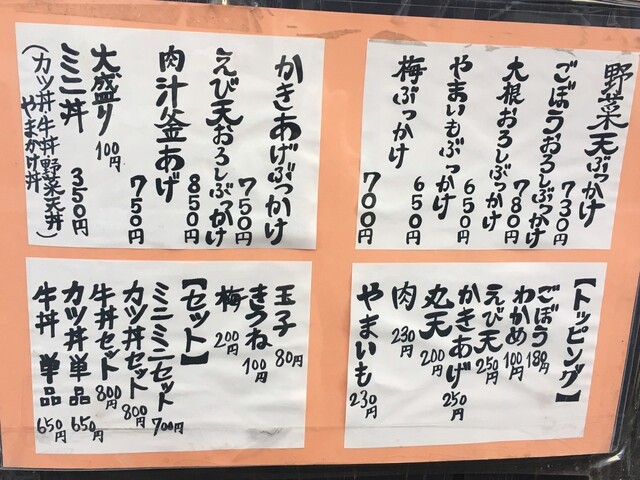 野菜天ぶっかけ
730円
ごぼうおろしぶっかけ
780円
大根おろしぶっかけ
650円
やまいもぶっかけ
650円
梅ぶっかけ
700円
かきあげぶっかけ
750円
えび天おろしぶっかけ
850円
肉汁釜あげ
750円
大盛り 100円
ミニ丼 350円
(カツ丼 牛丼 野菜天丼
やまかけ丼)
【トッピング】
ごぼう 180円
わかめ 100円
えび天 250円
かきあげ 250円
丸天 200円
肉 230円
やまいも 230円
玉子 80円
きつね 100円
梅 200円
【セット】
ミニミニセット 700円
カツ丼セット 800円
牛丼セット 800円
カツ丼 単品 650円
牛丼 単品 650円